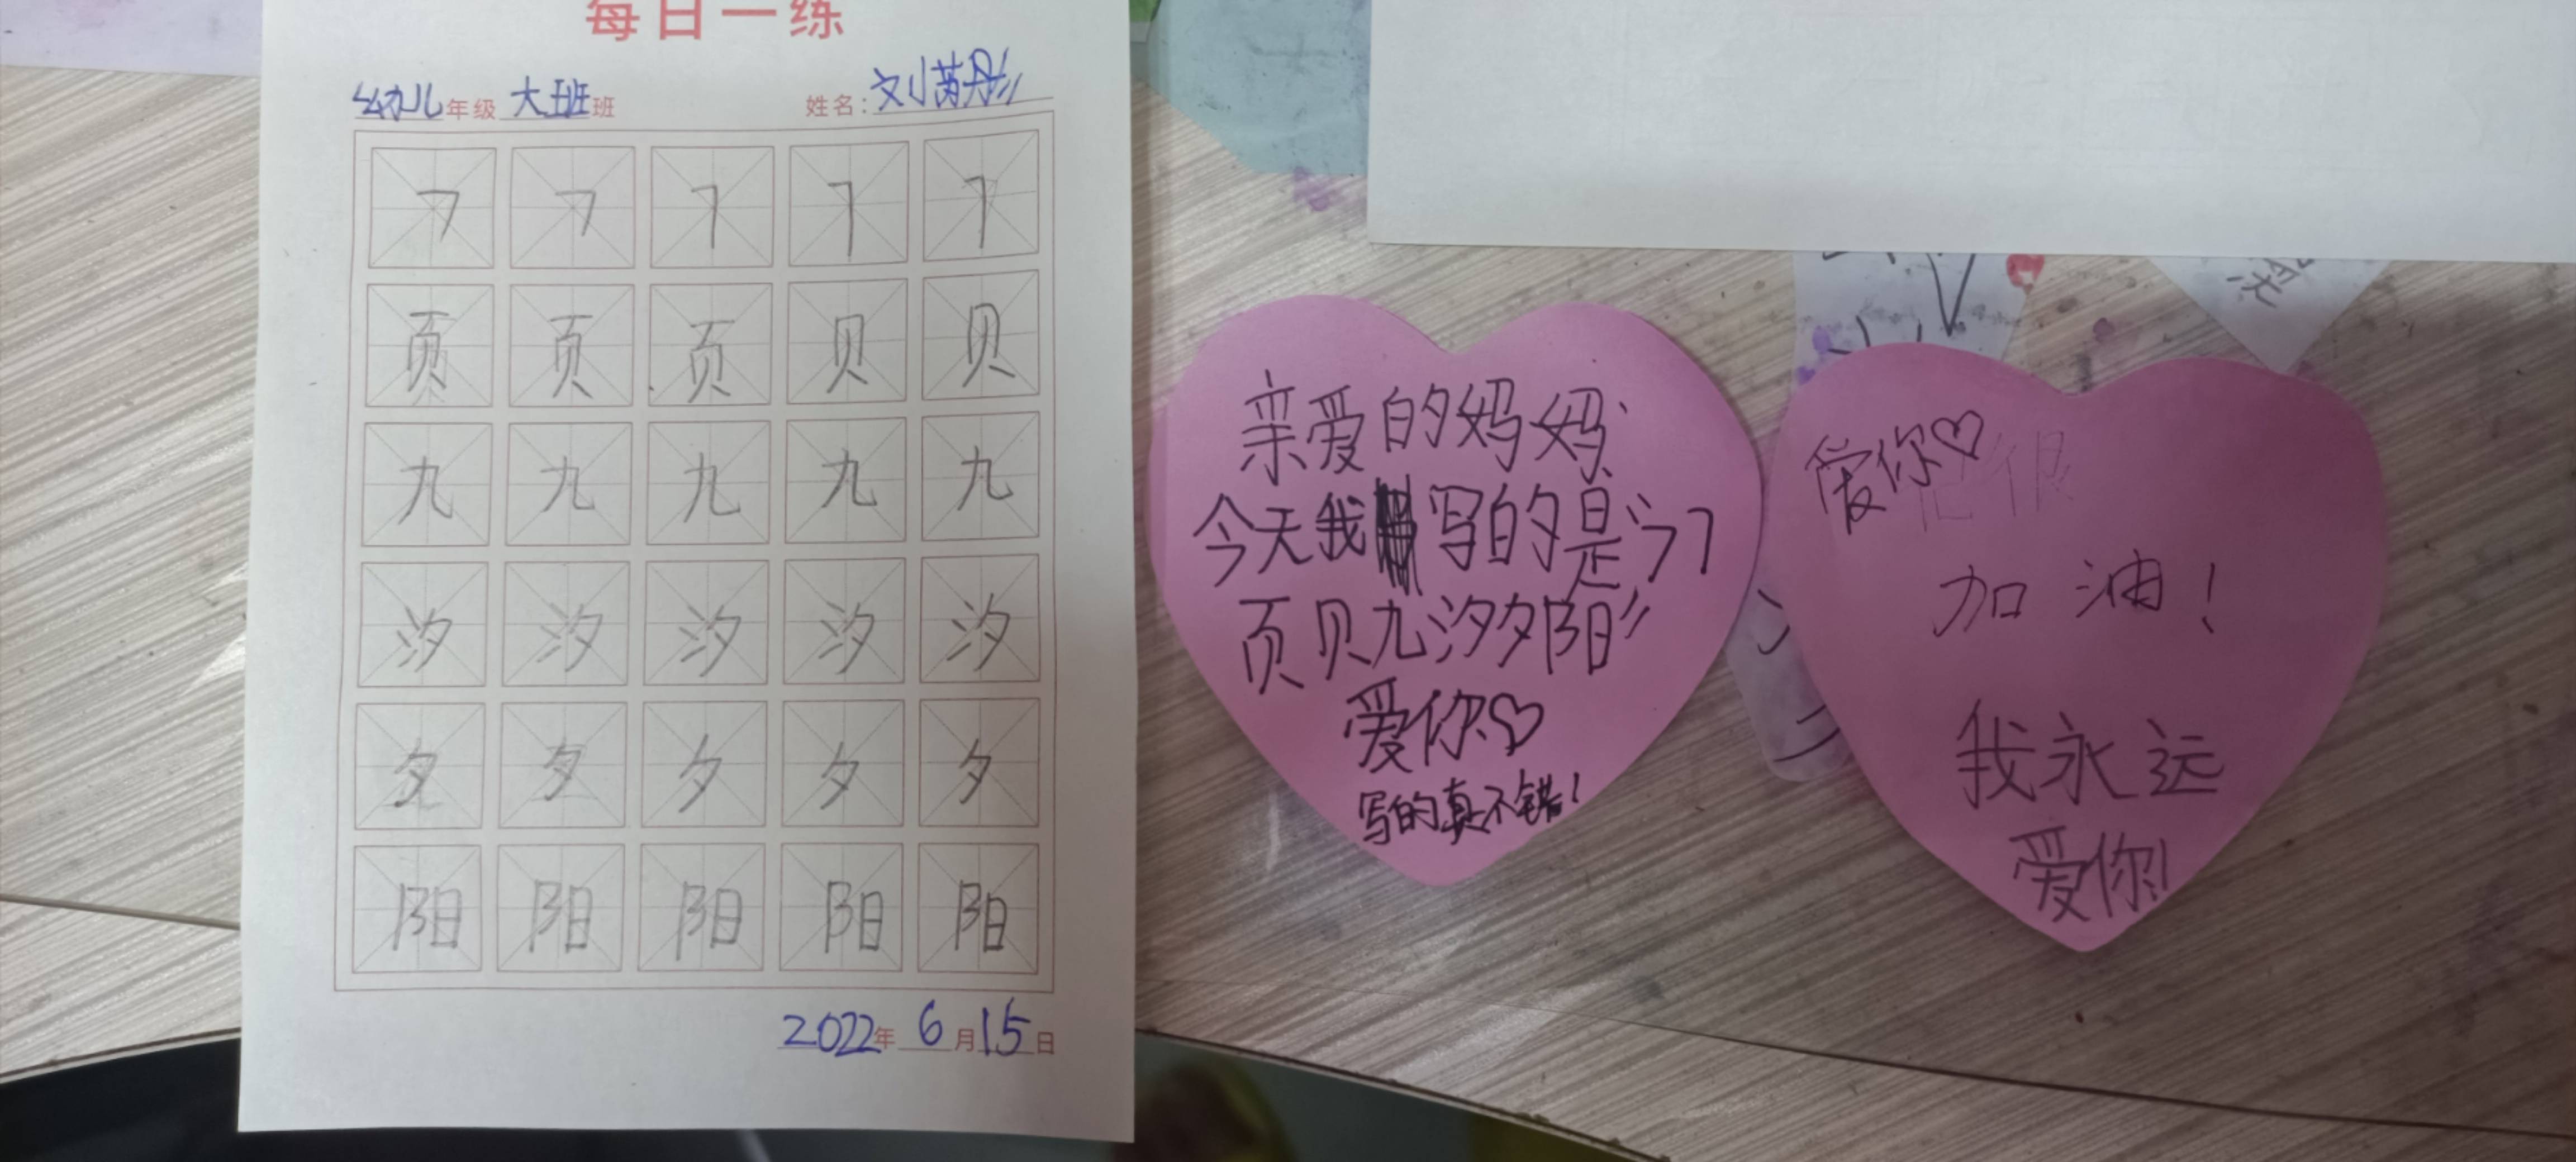 每日一练
幼儿年级 大班班 姓名：刘芮彤
㇕ ㇕ ㇕ ㇕ ㇕
页 页 页 贝 贝
九 九 九 九 九
汐 汐 汐 汐 汐
夕 夕 夕 夕 夕
阳 阳 阳 阳 阳
2022年 6月15日
亲爱的妈妈:
今天我写的是“㇕㇕
页贝九汐夕阳”
爱你♡
写的真不错！
爱你♡
加油！
我永远
爱你!